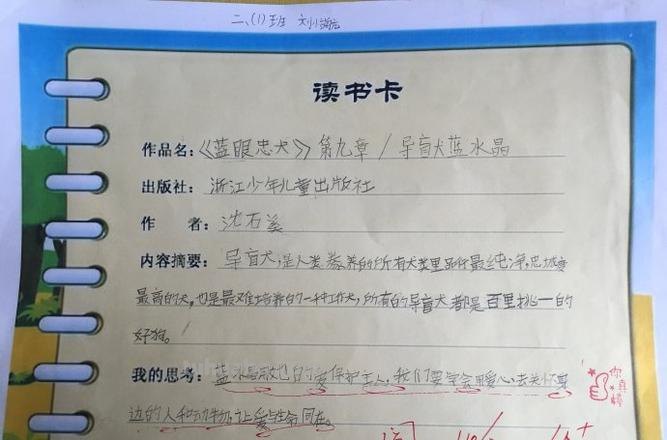 二、(1)班 刘
读书卡
作品名：《蓝眼忠犬》第九章 / 导盲犬蓝水晶
出版社：浙江少年儿童出版社
作 者：沈石溪
内容摘要：导盲犬，是人类豢养的所有犬类里品行最纯净，忠诚度
最高的犬，也是最难培养的一种工作犬，所有的导盲犬都是百里挑一的
好狗。
我的思考：蓝水晶 保护主人，我们要学会用爱心，去关怀身
边的人和动物，让爱与生命同在。
你真棒